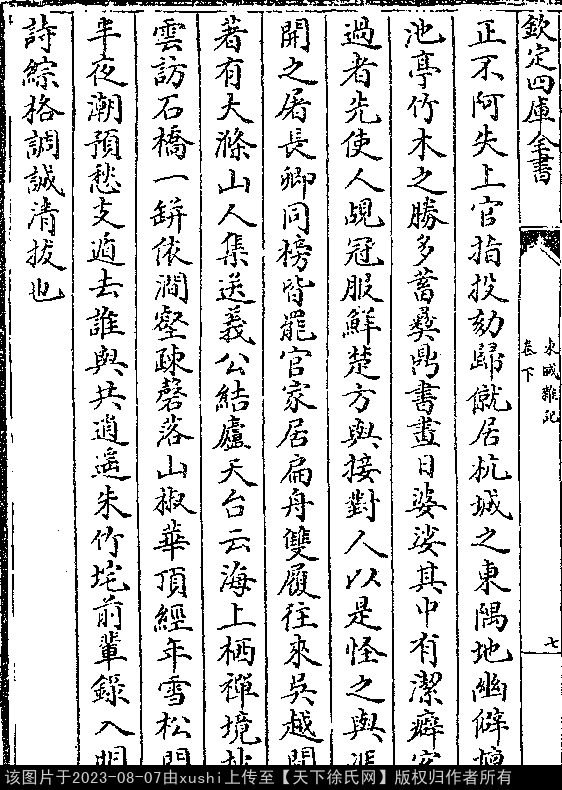 欽定四庫全書
東城雜記
卷下
七
正不阿失上官指投劾歸僦居杭城之東隅地幽僻擅
池亭竹木之勝多蓄彝鼎書畫日婆娑其中有潔癖客
過者先使人覘冠服鮮楚方與接對人以是怪之與馮
開之屠長卿同榜皆罷官家居扁舟雙屐往來吳越間
著有大滌山人集送義公結廬天台云海上栖禪境
雲訪石橋一缾依澗壑疎磬落山椒華頂經年雪松門
半夜潮預愁支遁去誰與共逍遙朱竹垞前輩錄入明
詩綜格調誠清拔也
该图片于2023-08-07由xushi上传至【天下徐氏网】版权归作者所有